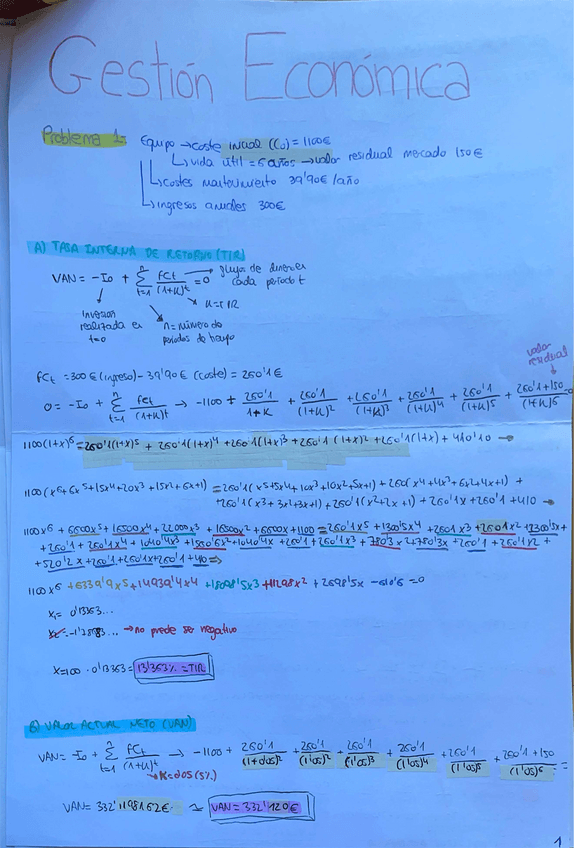 Gestión Económica
Problema 1:
Equipo → coste inicial (C₀) = 1100€
↳ vida útil = 6 años → valor residual mercado 150€
↳ costes mantenimiento 39'90€/año
↳ ingresos anuales 300€
A) TASA INTERNA DE RETORNO (TIR)
VAN = -I₀ + Σ(t=1, n) FCt/(1+K)^t = 0
flujos de dinero en cada periodo t
K = TIR
inversión realizada en t=0
n = número de periodos de tiempo
FCt = 300€ (ingreso) - 39'90€ (coste) = 260'1€
valor residual
0 = -I₀ + Σ(t=1, n) FCt/(1+K)^t → -1100 + 260'1/(1+K) + 260'1/(1+K)² + 260'1/(1+K)³ + 260'1/(1+K)⁴ + 260'1/(1+K)⁵ + 260'1+150/(1+K)⁶ = 0
1100(1+x)⁶ = 260'1(1+x)⁵ + 260'1(1+x)⁴ + 260'1(1+x)³ + 260'1(1+x)² + 260'1(1+x) + 410'10 →
1100(x⁶+6x⁵+15x⁴+20x³+15x²+6x+1) = 260'1(x⁵+5x⁴+10x³+10x²+5x+1) + 260(x⁴+4x³+6x²+4x+1) +
+260'1(x³+3x²+3x+1) + 260'1(x²+2x+1) + 260'1x + 260'1 + 410 →
1100x⁶ + 6600x⁵ + 16500x⁴ + 22000x³ + 16500x² + 6600x + 1100 = 260'1x⁵ + 1300'5x⁴ + 2601x³ + 2601x² + 1300'5x +
+ 260'1 + 260'1x⁴ + 1040'4x³ + 1560'6x² + 1040'4x + 260'1 + 260'1x³ + 780'3x² + 780'3x + 260'1 + 260'1x² +
+ 520'2x + 260'1 + 260'1x + 260'1 + 410 →
1100x⁶ + 6339'9x⁵ + 14939'4x⁴ + 18098'5x³ + 11298x² + 2698'5x - 610'6 = 0
x₁ = 0'13363...
→ no puede ser negativo
x = 100 · 0'13363 = 13'363% = TIR
B) VALOR ACTUAL NETO (VAN)
VAN = -I₀ + Σ(t=1, n) FCt/(1+K)^t → -1100 + 260'1/(1+0'05) + 260'1/(1'05)² + 260'1/(1'05)³ + 260'1/(1'05)⁴ + 260'1/(1'05)⁵ + 260'1+150/(1'05)⁶ =
↳ K = 0'05 (5%)
VAN = 332'1198162€ ≃ VAN = 332'120€
1